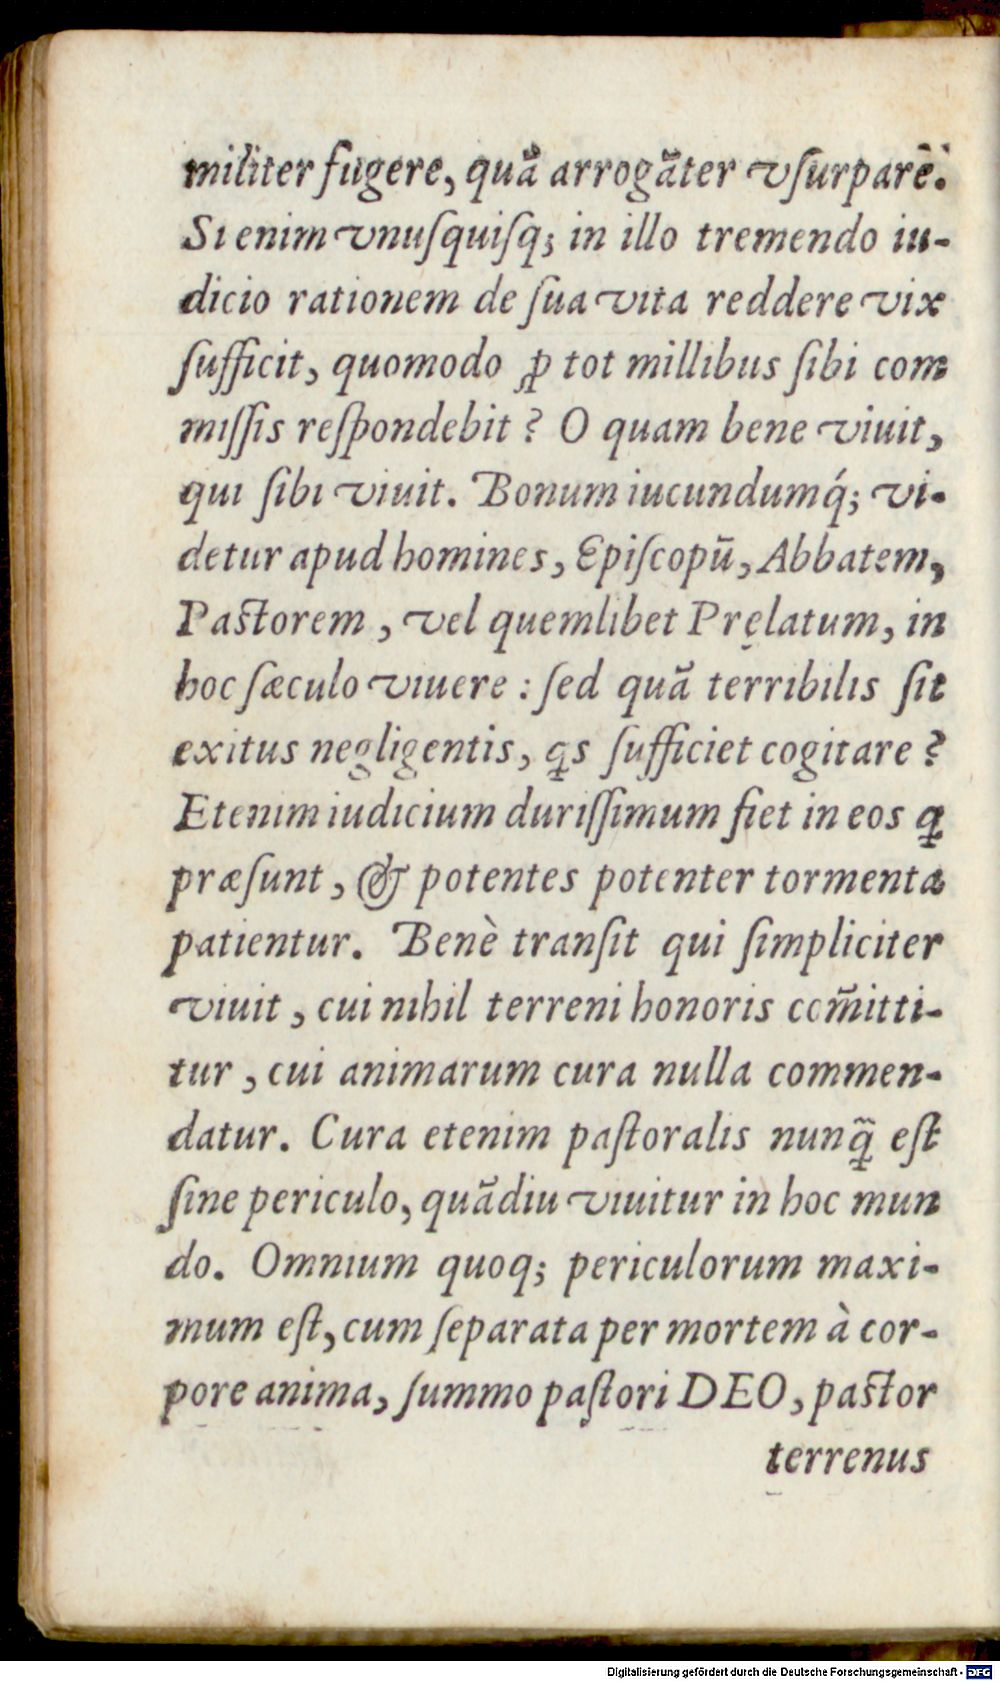 militer fugere, quã arrogãter vſurparē.
Si enim vnuſquiſq; in illo tremendo iu-
dicio rationem de ſua vita reddere vix
ſufficit, quomodo ꝓ tot millibus ſibi com
miſſis reſpondebit? O quam bene viuit,
qui ſibi viuit. Bonum iucundumq́; vi-
detur apud homines, Epiſcopū, Abbatem,
Paſtorem, vel quemlibet Pręlatum, in
hoc ſæculo viuere: ſed quã terribilis ſit
exitus negligentis, ꝗs ſufficiet cogitare?
Etenim iudicium duriſſimum fiet in eos ꝗ
præſunt, & potentes potenter tormenta
patientur. Benè tranſit qui ſimpliciter
viuit, cui nihil terreni honoris com̃itti-
tur, cui animarum cura nulla commen-
datur. Cura etenim paſtoralis nunꝗ̃ eſt
ſine periculo, quãdiu viuitur in hoc mun
do. Omnium quoq; periculorum maxi-
mum eſt, cum ſeparata per mortem à cor-
pore anima, ſummo paſtori DEO, paſtor
terrenus
Digitalisierung gefördert durch die Deutsche Forschungsgemeinschaft - DFG